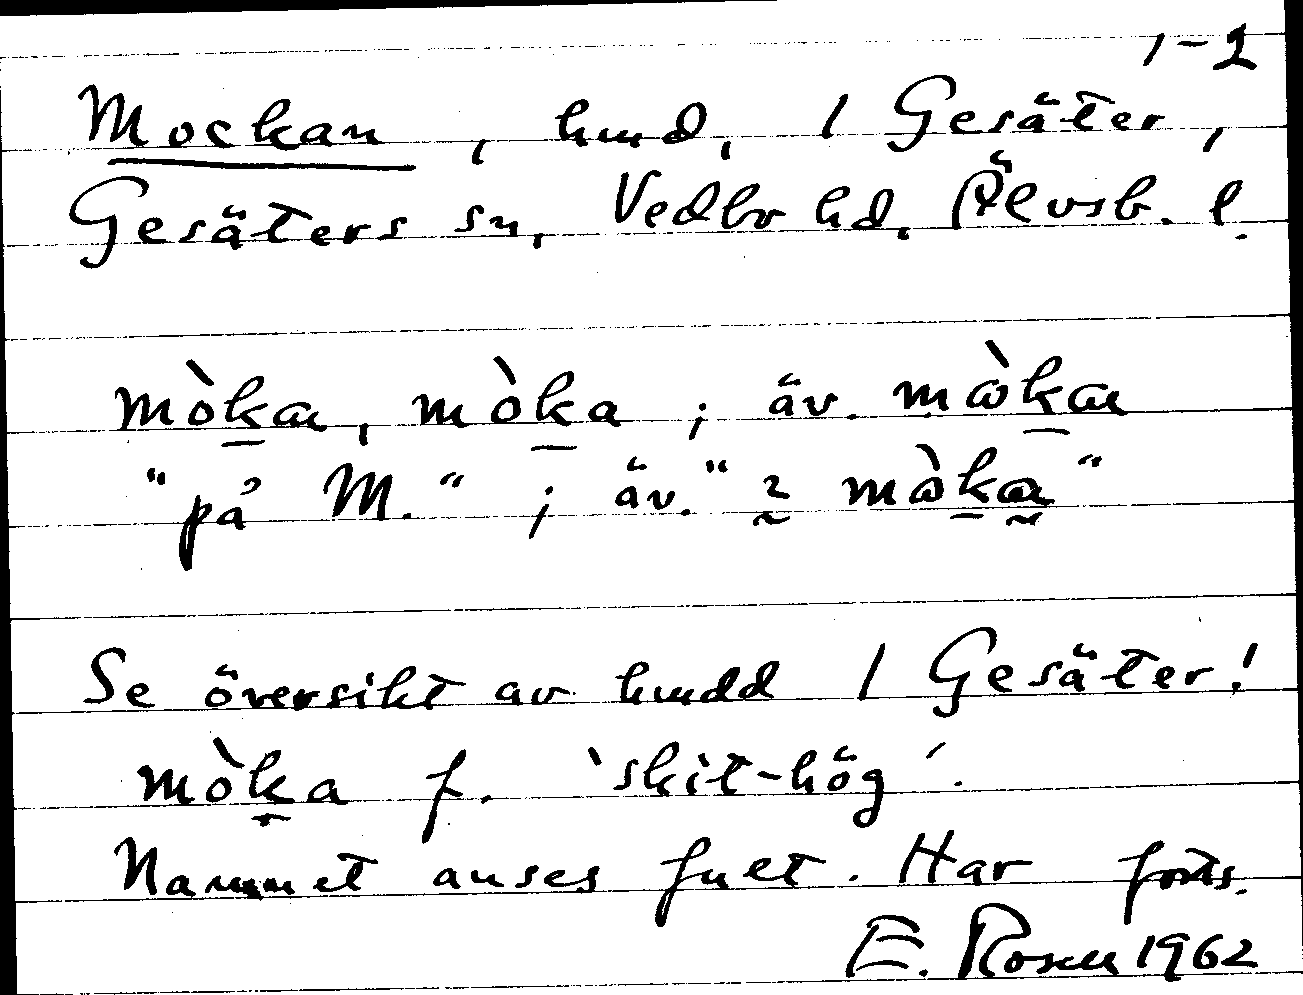 1-2
Mockan, hmd, 1 Gesäter,
Gesäters sn, Vedbo hd, Älvsb. l.
mòkan, mòka ; äv. mɷ̀kan
"på M." ; äv. "
Se översikt av hmdd 1 Gesäter!
mòka f. 'skit-hög'.
Nammet anses fult. Har forts.
E. Rosen 1962